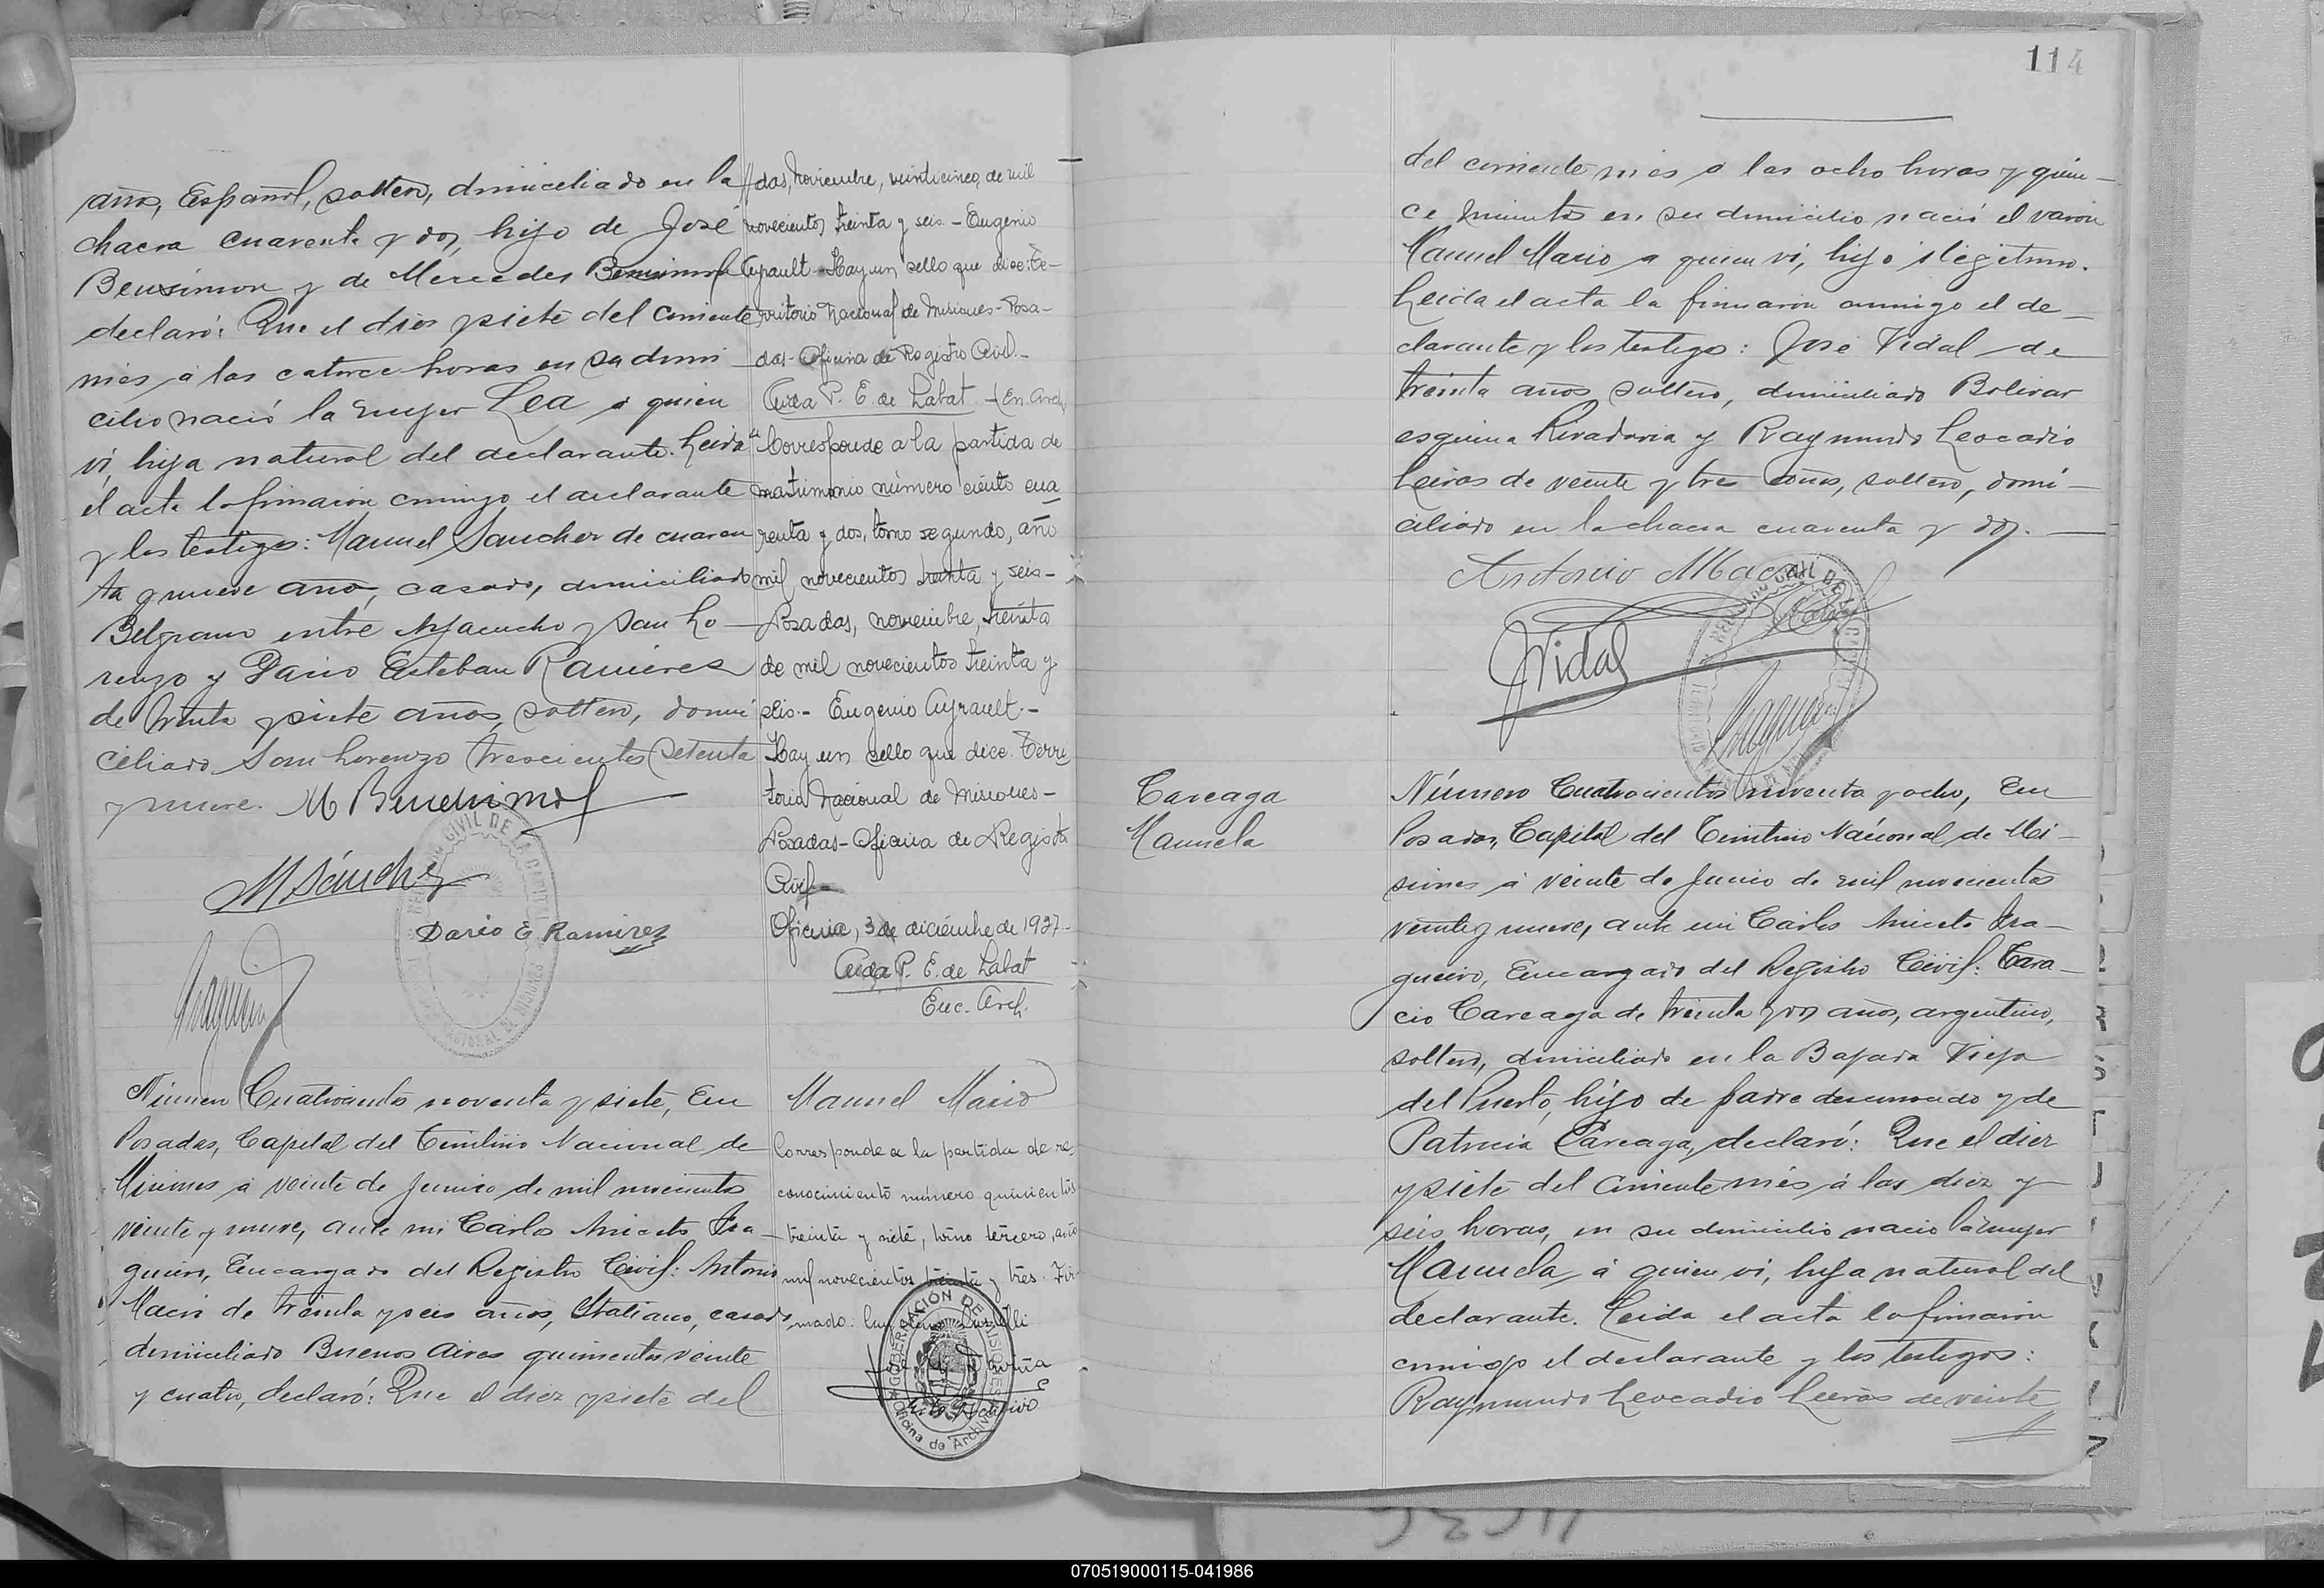 años, Español, soltero, domiciliado en la
chacra cuarenta y dos, hijo de José
Bensimon y de Mercedes
declaró: Que el dia siete del corriente
mes á las catorce horas en su domi
cilio nació la mujer Lea á quien
vi, hija natural del declarante. Leida
el acta la firmaron conmigo el declarante
y los testigos: Manuel Sanchez de cuaren
ta y nueve años, casado, domiciliado
Belgrano entre Ayacucho y San Lo—
renzo y Dario Esteban Ramirez
de treinta y siete años, soltero, domi
ciliado San Lorenzo trescientos setenta
y nueve. M Benchimol
M Sánchez
Dario E Ramirez
das, noviembre, veinticinco, de mil
novecientos treinta y seis.- Eugenio
Ayrault.- Hay un sello que dice: Te-
rritorio Nacional de Misiones- Posa-
das- Oficina de Registro Civil.-
Aida P. E. de Labat.- (En. Arch.
Corresponde a la partida de
matrimonio número ciento cua
renta y dos, tomo segundo, año
mil novecientos treinta y seis-
Posadas, noviembre, treinta
de mil novecientos treinta y
seis.- Eugenio Ayrault.-
Hay un sello que dice: Terri
torio Nacional de Misiones-
Posadas- Oficina de Registro
Civil-
Oficina, 3 de diciembre de 1937.-
Aida P. E. de Labat
Enc. Arch.
Número Cuatrocientos noventa y siete, En
Posadas, Capital del Territorio Nacional de
Misiones á veinte de Junio de mil novecientos
veinte y nueve, ante mi Carlos Aniceto Ira—
gueiro, Encargado del Registro Civil: Antonio
Macri de treinta y seis años, Italiano, casado,
domiciliado Buenos Aires quinientos veinte
y cuatro, declaró: Que el diez y siete del
Manuel Mario
Corresponde a la partida de re
conocimiento número quinientos
treinta y siete, tomo tercero, año
mil novecientos treinta y tres. Fir
mado:
GOBERNACIÓN DE MISIONES
Oficina de Archivo
114
del corriente mes á las ocho horas y quin—
ce minutos en su domicilio nació el varon
Manuel Mario a quien vi, hijo ilegitimo.
Leida el acta la firmaron conmigo el de—
clarante y los testigos: José Vidal de
treinta años soltero, domiciliado Bolivar
esquina Rivadavia y Raymundo Leocadio
Leiras de veinte y tres años, soltero, domi—
ciliado en la chacra cuarenta y dos.—
Antonio Macri
JVidal
Careaga
Manuela
Número Cuatrocientos noventa y ocho, En
Posadas, Capital del Territorio Nacional de Mi—
siones á veinte de Junio de mil novecientos
veinte y nueve, ante mi Carlos Aniceto Ira—
gueiro, Encargado del Registro Civil: Tara—
cio Careaga de treinta y dos años, argentino,
soltero, domiciliado en la Bajada Vieja
del Puerto, hijo de padre desconocido y de
Patricia Careaga, declaró: Que el diez
y siete del corriente mes á las diez y
seis horas, en su domicilio nació la mujer
Manuela, á quien vi, hija natural del
declarante. Leida el acta la firmaron
conmigo el declarante y los testigos:
Raymundo Leocadio Leiras de veinte
070519000115-041986